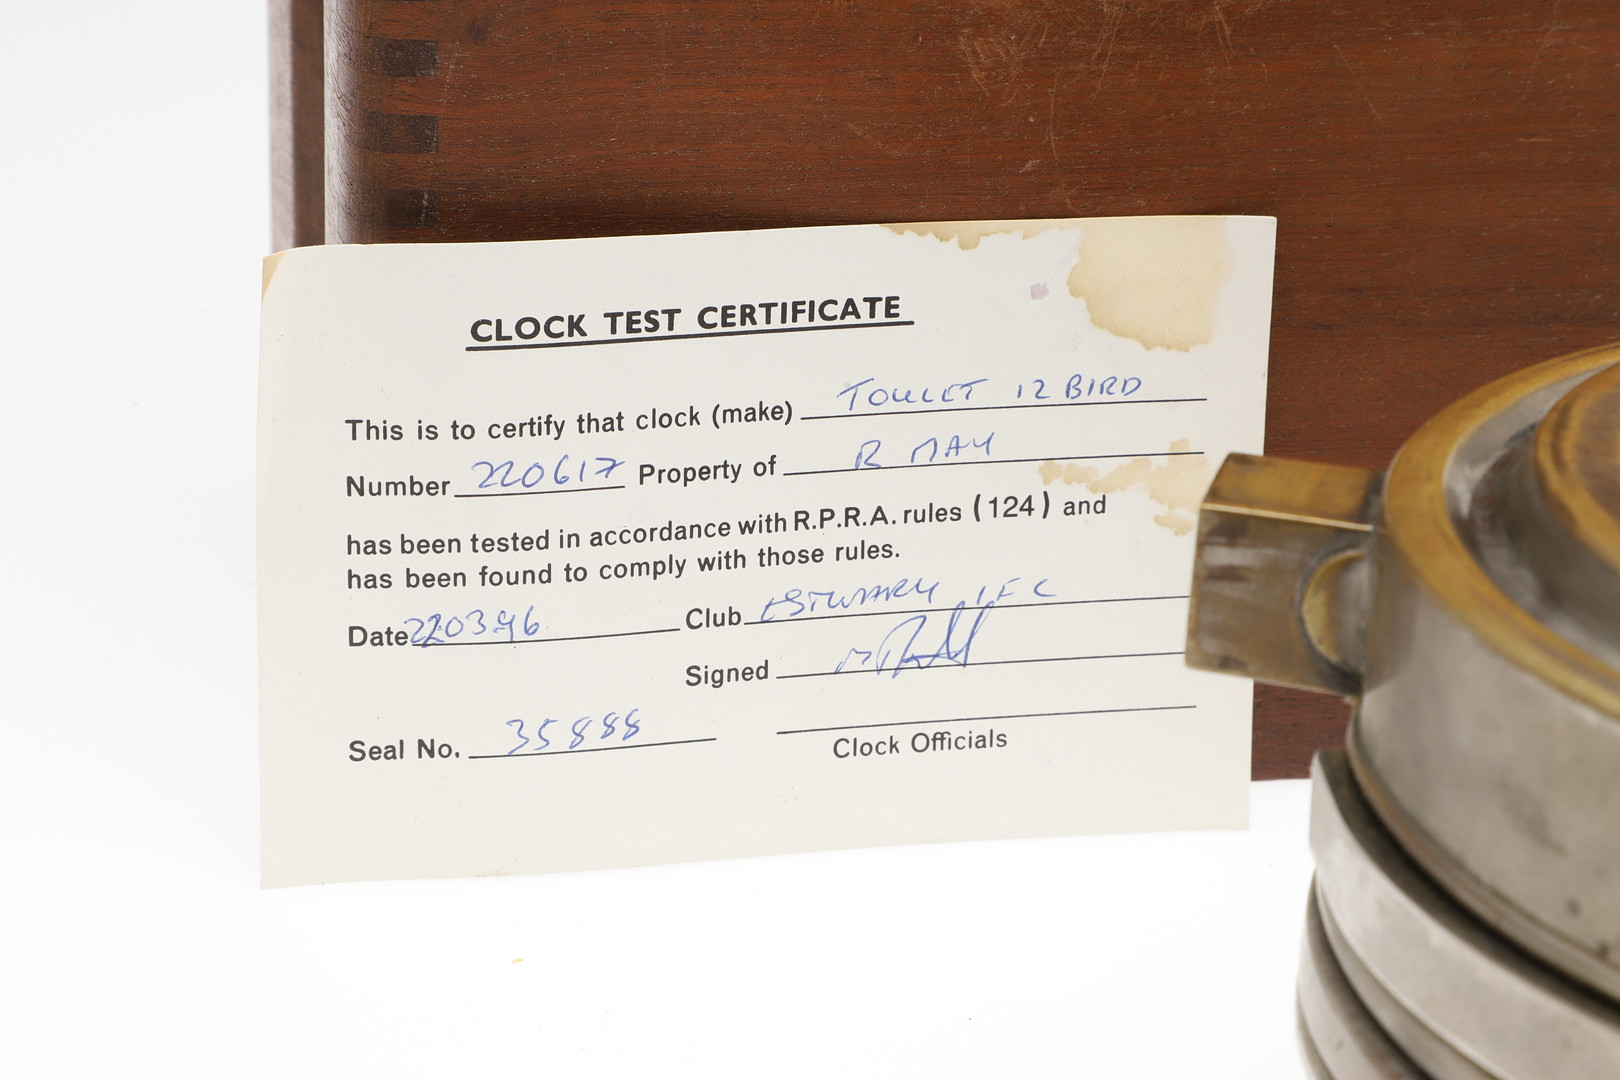 CLOCK TEST CERTIFICATE
This is to certify that clock (make) TOULET 12 BIRD
Number 220617 Property of R MAY
has been tested in accordance with R.P.R.A. rules (124) and
has been found to comply with those rules.
Date 220396 Club ESTUARY
Signed
Seal No. 35888
Clock Officials